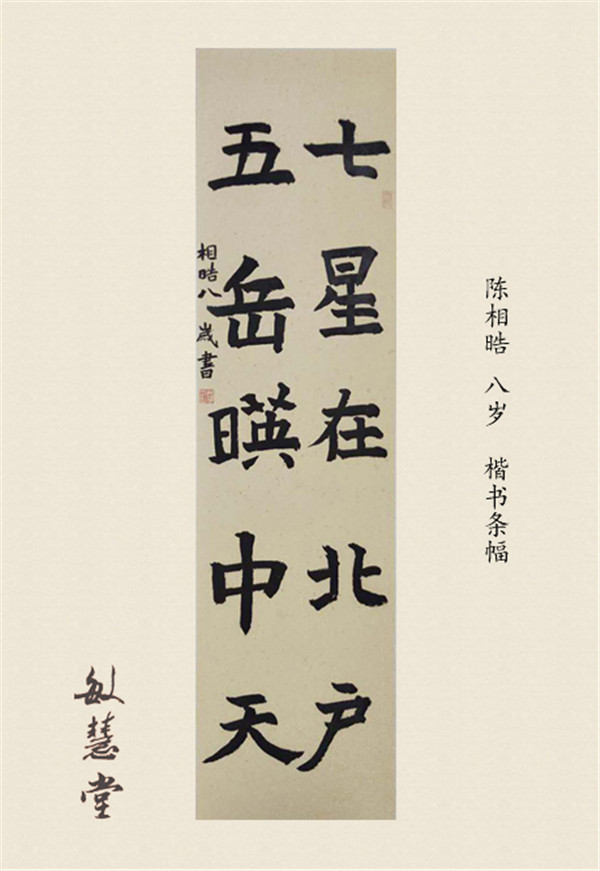 七星在北户
五岳暎中天
相晧八歲書
陈相晧 八岁 楷书条幅
敏慧堂